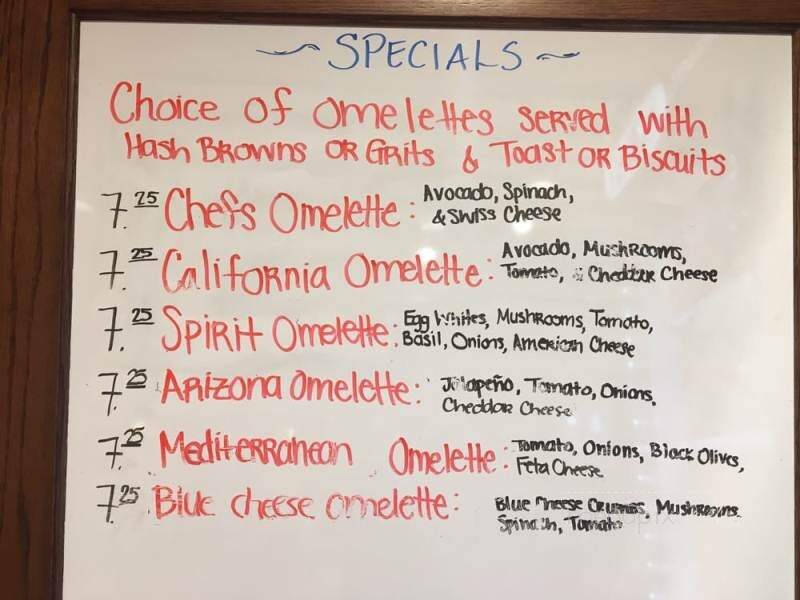 ~ SPECIALS ~
Choice of omelettes served with
Hash Browns or Grits & Toast or Biscuits
7.25 Chefs Omelette: Avocado, Spinach,
& Swiss Cheese
7.25 California Omelette: Avocado, Mushrooms,
Tomato, & Cheddar Cheese
7.25 Spirit Omelette: Egg Whites, Mushrooms, Tomato,
Basil, Onions, American Cheese
7.25 Arizona Omelette: Jalapeño, Tomato, Onions,
Cheddar Cheese
7.25 Mediterranean Omelette: Tomato, Onions, Black Olives,
Feta Cheese
7.25 Blue cheese omelette: Blue Cheese Crumbs, Mushrooms
Spinach, Tomato